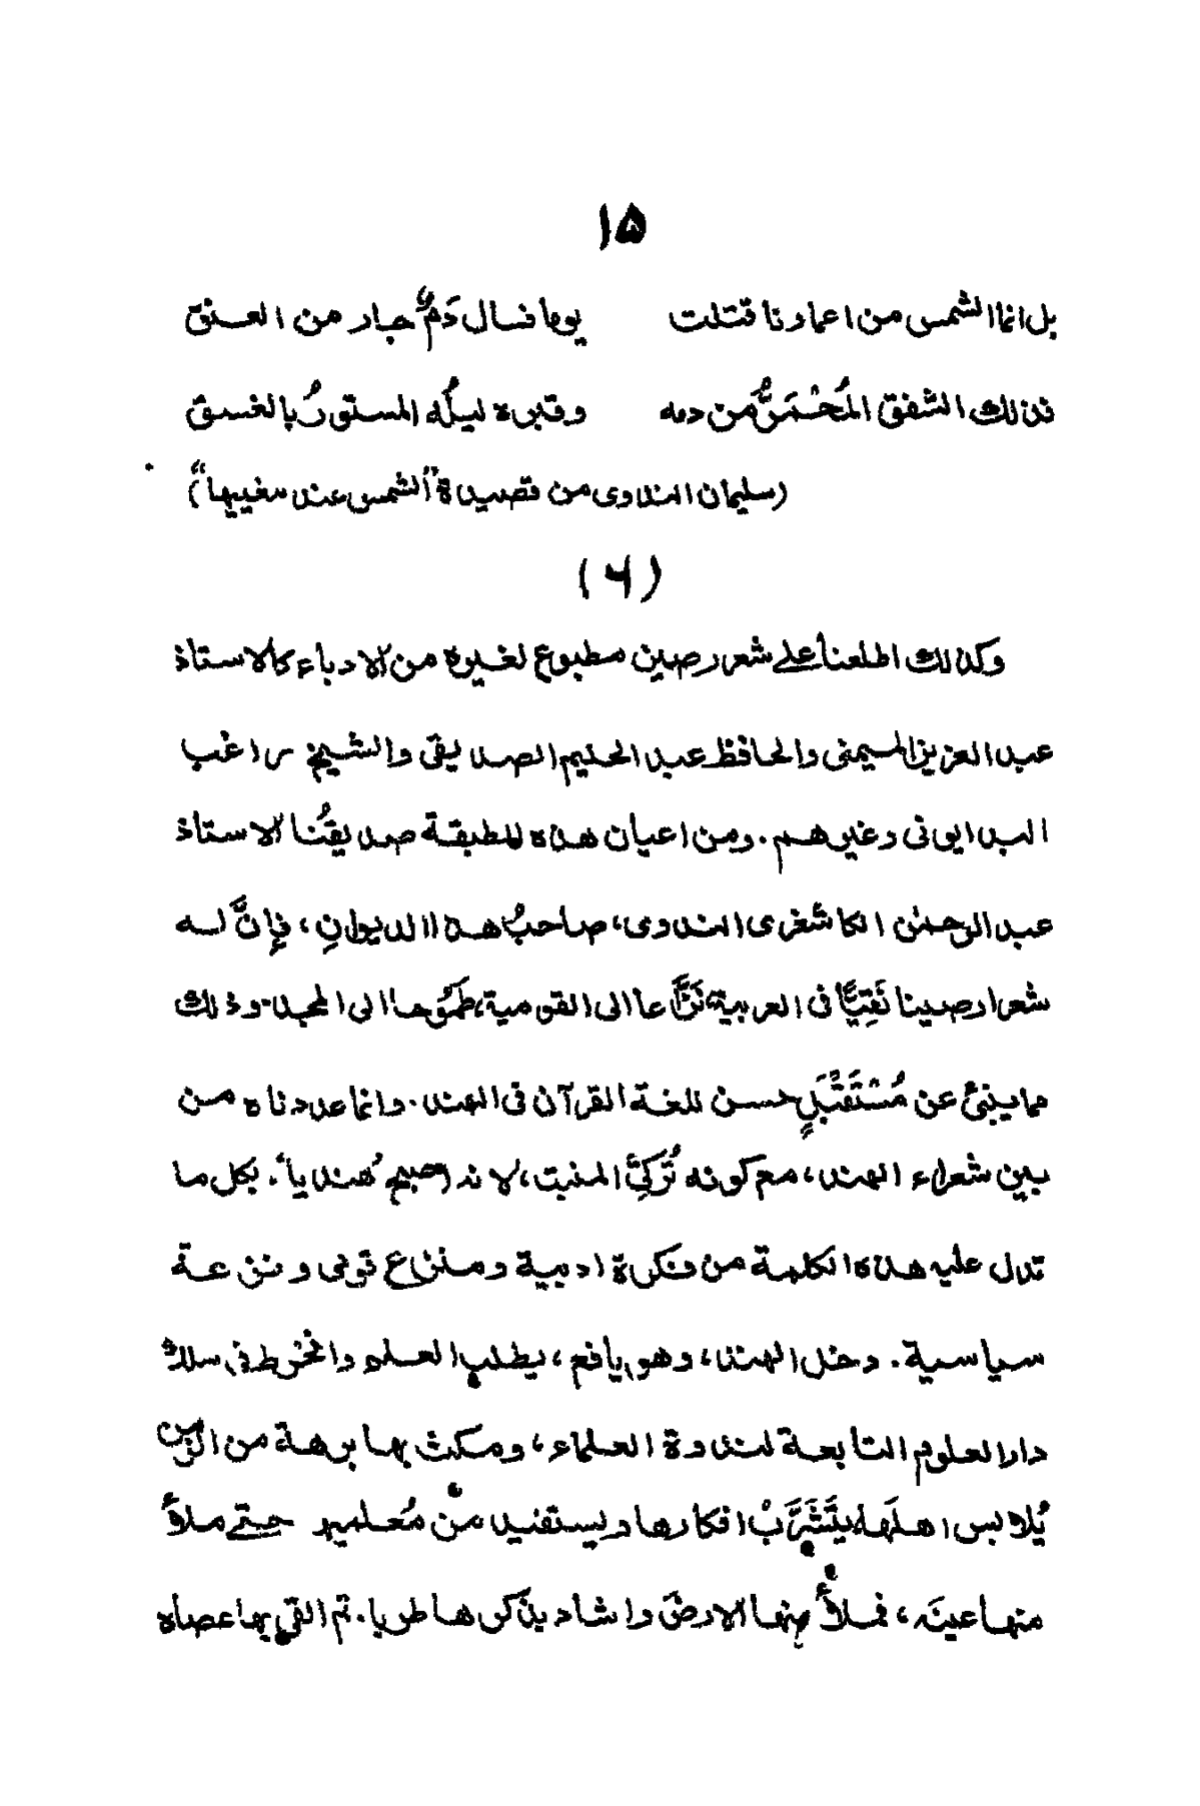 ١۵
بل انما الشمس من اعمارنا قتلت يوما فسال دَمٌ جار من العنق
فذلك الشفق المُحْمَرُّ من دمه وقبره ليلُه المستورُ بالغسق
(سليمان الندوى من قصيدة "الشمس عند مغيبها")
(٦)
وكذلك اطلعنا على شعر رصين مطبوع لغيره من الادباء كالاستاذ
عبد العزيز الميمنى والحافظ عبد الحليم الصديقى والشيخ راغب
البدايونى وغيرهم. ومن اعيان هذه الطبقة صديقُنا الاستاذ
عبد الرحمٰن الكاشغرى الندوى، صاحبُ هذا الديوانِ، فإنَّ له
شعرا رصينا نَقِيًّا فى العربية، نَزَّاعا الى القومية، طَمُوحا الى المجد. وذلك
مما ينبئ عن مُسْتَقْبَلٍ حسن للغة القرآن فى الهند. وانما عددناه من
بين شعراء الهند، مع كونه تُركِيَّ المنبت، لانه اصبح "هنديا". بكل ما
تدل عليه هذه الكلمة من فكرة ادبية ومنزع قومى ونزعة
سياسية. دخل الهند، وهو يافع، يطلب العلم وانخرط فى سلك
دار العلوم التابعة لندوة العلماء، ومكث بها برهة من الزمن
يُلابس اهلَها، يتَشَرَّبْ افكارها ويستفيد من مُعلميه حتى ملأ
منها عينَه، فملأ مِنها الارضَ واشاد بذكرها طربا. ثم القى بها عصاه